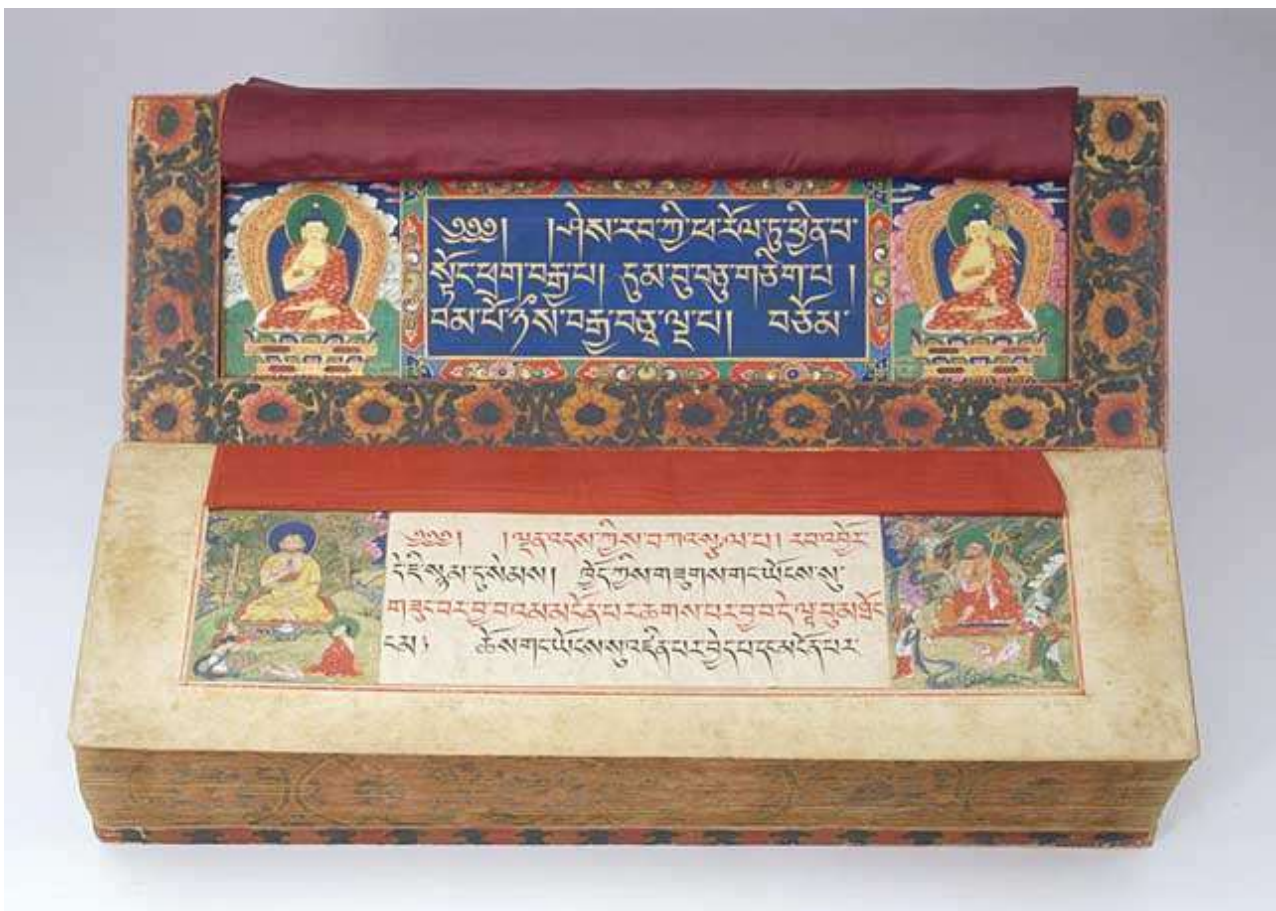 ༄༅༅། །ཤེས་རབ་ཀྱི་ཕ་རོལ་ཏུ་ཕྱིན་པ་
སྟོང་ཕྲག་བརྒྱ་པ། དུམ་བུ་བཅུ་གཅིག་པ །
བམ་པོ་ཉི་ཤོ་བརྒྱ་བཅུ་ལྔ་པ། བཅོམ་
༄༅༅། །ལྡན་འདས་ཀྱིས་བཀའ་སྩལ་པ། རབ་འབྱོར་
དེ་ཇི་སྙམ་དུ་སེམས། ཁྱེད་ཀྱིས་གཟུགས་གང་ཡོངས་སུ་
གཟུང་བར་བྱ་བའམ་མངོན་པར་ཆགས་པར་བྱ་བ་དེ་ལྟ་བུ་མཐོང་
ངམ། ཆོས་གང་ཡོངས་སུ་འཛིན་པར་བྱེད་པ་དང་མངོན་པར་